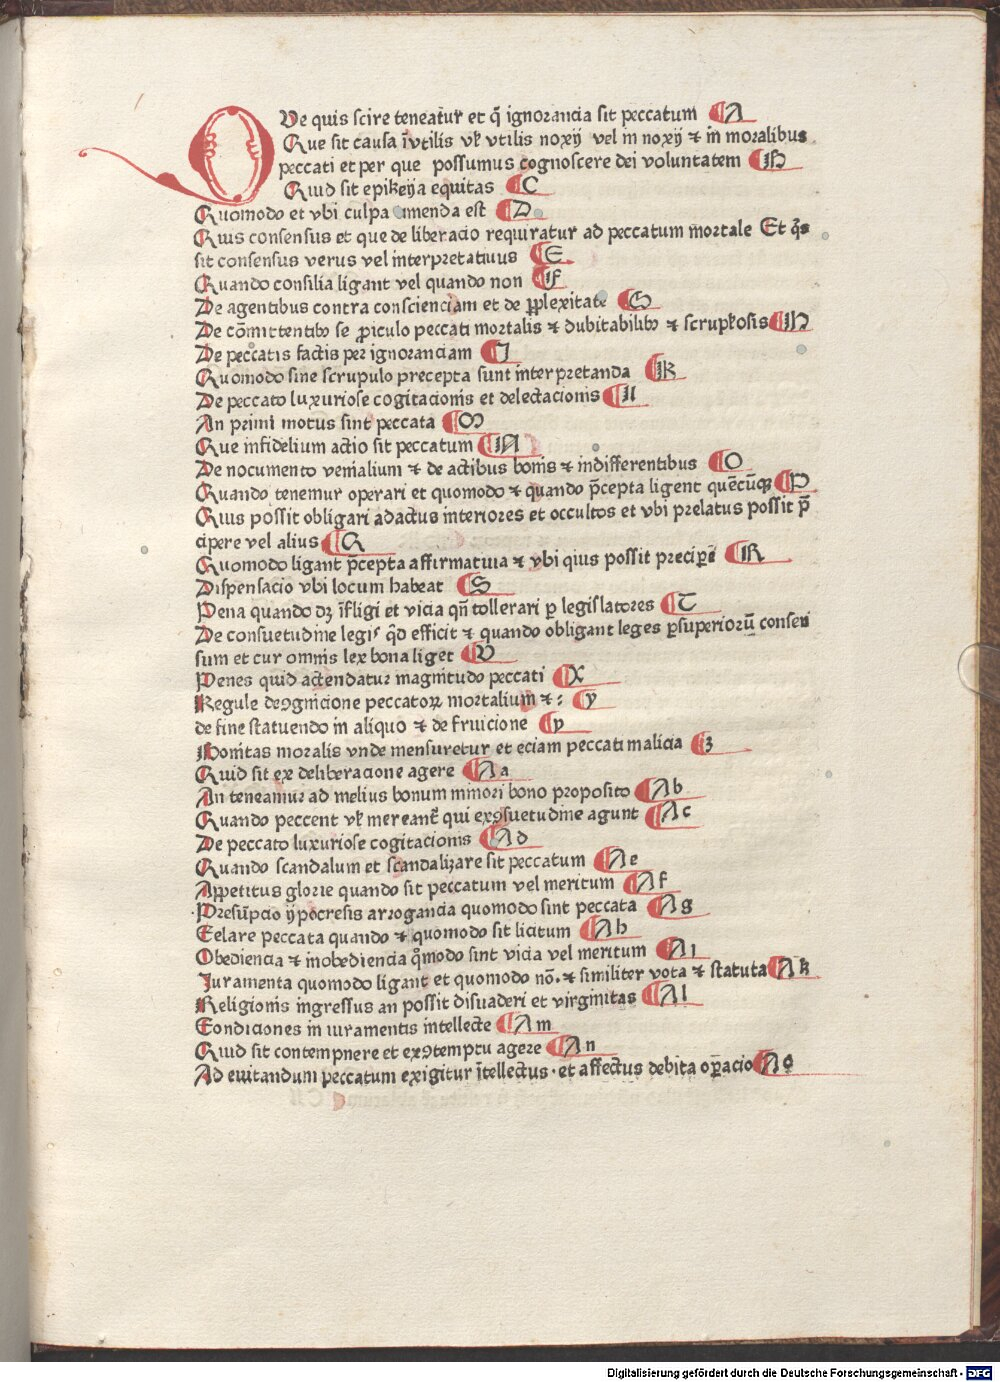 QVe quis scire teneatur et q̄ ignorancia sit peccatum A
Que sit causa īvtilis vl' vtilis noxij vel in noxij & in moralibus
peccati et per que possumus cognoscere dei voluntatem B
Quid sit epikeija equitas C
Quomodo et vbi culpa amenda est D
Quis consensus et que de liberacio requiratur ad peccatum mortale Et q̄s
sit consensus verus vel interpretatiuus E
Quando consilia ligant vel quando non F
De agentibus contra conscienciam et de ꝑplexitate G
De cōmittentibꝰ se ꝑiculo peccati mortalis & dubitabilibꝰ & scrupl'osis H
De peccatis factis per ignoranciam I
Quomodo sine scrupulo precepta sunt interpretanda K
De peccato luxuriose cogitacionis et delectacionis Ll
An primi motus sint peccata M
Que infidelium actio sit peccatum N
De nocumento venialium & de actibus bonis & indifferentibus O
Quando tenemur operari et quomodo & quando p̄cepta ligent quēcūqꝫ P
Quis possit obligari ad actus interiores et occultos et vbi prelatus possit p̄
cipere vel alius Q
Quomodo ligant p̄cepta affirmatiua & vbi qius possit precipē R
Dispensacio vbi locum habeat S
Pena quando dꝫ īfligi et vicia qn̄ tollerari ꝑ legislatores T
De consuetudine legis qd̄ efficit & quando obligant leges ꝑsuperiorū consen
sum et cur omnis lex bona liget V
Penes quid actendatur magnitudo peccati X
Regule deꝯgnicione peccatoꝝ mortalium &: y
de fine statuendo in aliquo & de fruicione y
Bonitas moralis vnde mensuretur et eciam peccati malicia z
Quid sit ex deliberacione agere Aa
An teneamur ad melius bonum minori bono proposito Ab
Quando peccent vl' mereant̄ qui exꝯsuetudine agunt Ac
De peccato luxuriose cogitacionis Ad
Quando scandalum et scandalizare sit peccatum Ae
Appetitus glorie quando sit peccatum vel meritum Af
Presūpcio ypocresis arrogancia quomodo sint peccata Ag
Celare peccata quando & quomodo sit licitum Ah
Obediencia & inobediencia qͦmodo sint vicia vel meritum Ai
Iuramenta quomodo ligant et quomodo nō. & similiter vota & statuta Ak
Religionis ingressus an possit disuaderi et virginitas Al
Condiciones in iuramentis intellecte Am
Quid sit contempnere et exꝯtemptu agere An
Ad euitandum peccatum exigitur ītellectus. et affectus debita oꝑacio Ao
Digitalisierung gefördert durch die Deutsche Forschungsgemeinschaft - DFG